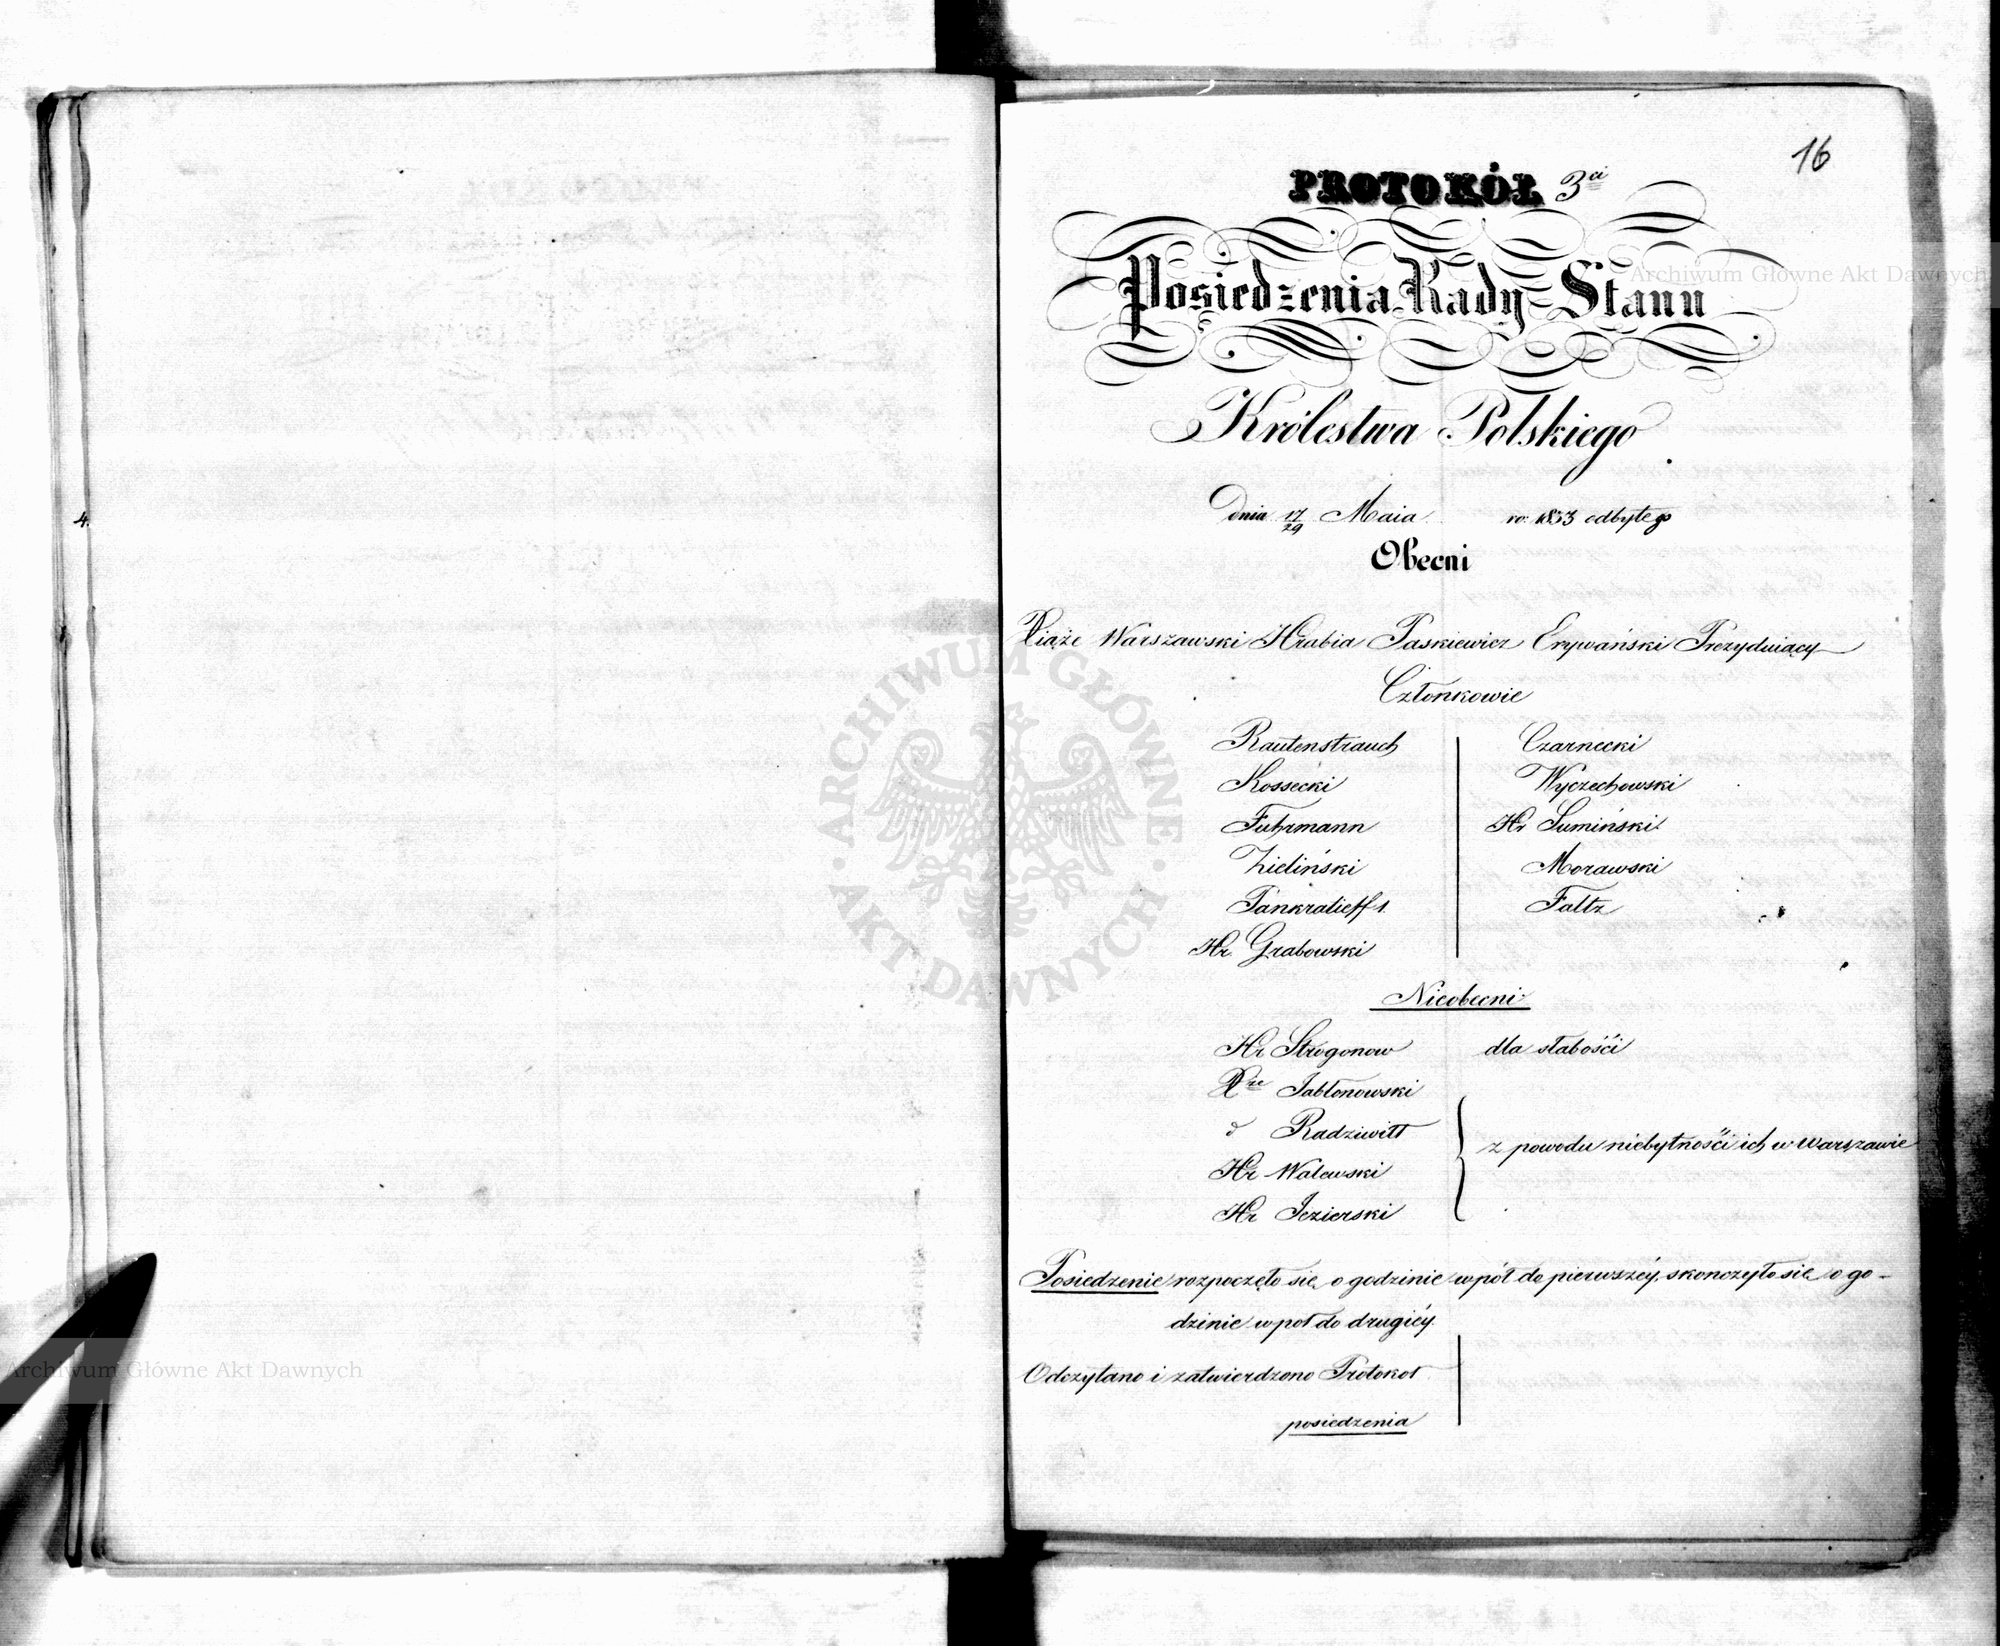 4.
16
PROTOKÓŁ 3ci
Posiedzenia Rady Stanu
Królestwa Polskiego
Dnia 17/29 Maia ro: 1833 odbytego
Obecni
Xiąże Warszawski Hrabia Paskiewicz Erywański Prezyduiący
Członkowie
Rautenstrauch Czarnecki
Kossecki Wyczechowski
Fuhrmann Hr Sumiński
Zieliński Morawski
Pankratieff 1. Faltz
Hr. Grabowski
Nieobecni
Hr Strogonow dla słabości
Xże Jabłonowski
d Radziwiłł
z powodu niebytności ich w Warszawie
Hr Walewski
Hr Jezierski
Posiedzenie rozpoczęło się o godzinie wpół do pierwszéy, skonczyło się o go-
dzinie wpoł do drugiéy.
Odczytano i zatwierdzono Protokoł
posiedzenia
ARCHIWUM GŁÓWNE AKT DAWNYCH
Archiwum Główne Akt Dawnych
Archiwum Główne Akt Dawnych